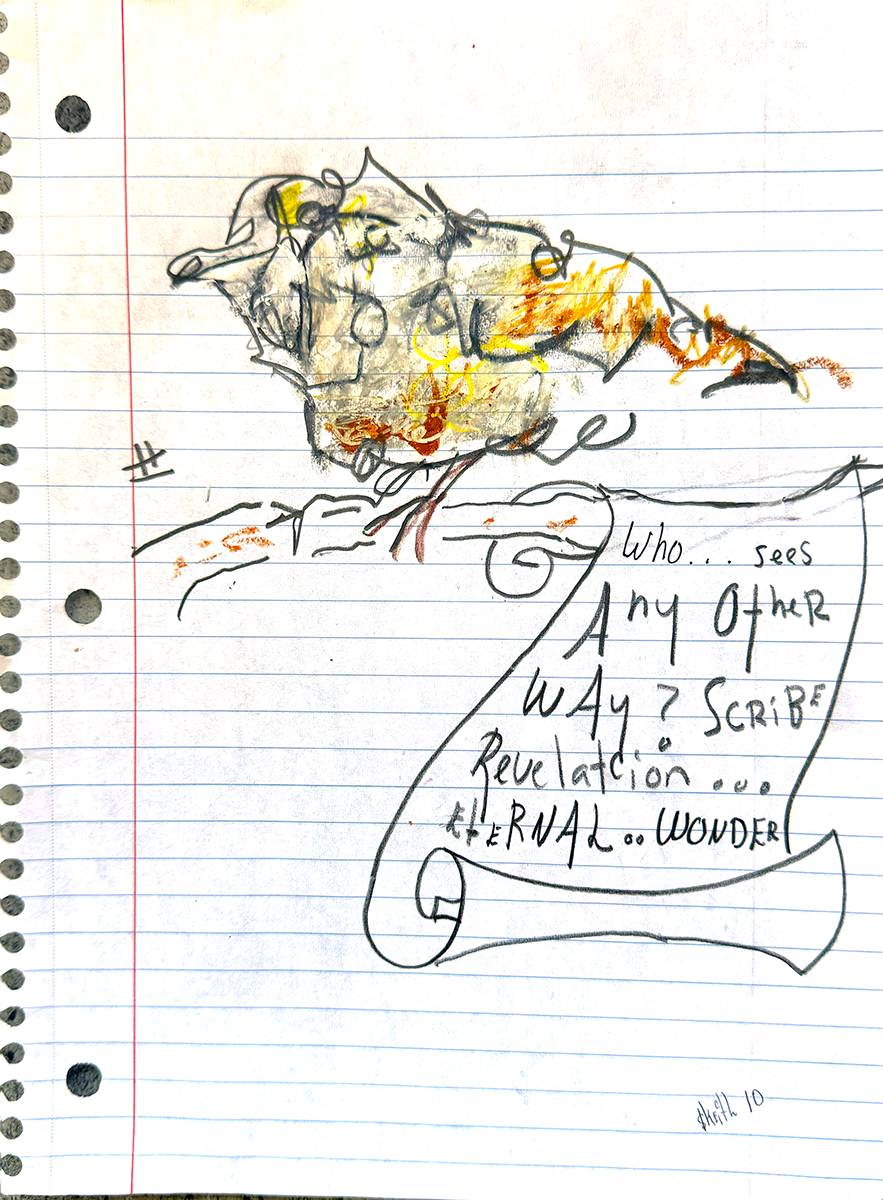 #
Who... sees
Any Other
Way? Scribe
Revelatcion...
EtERNAL.. WONDER